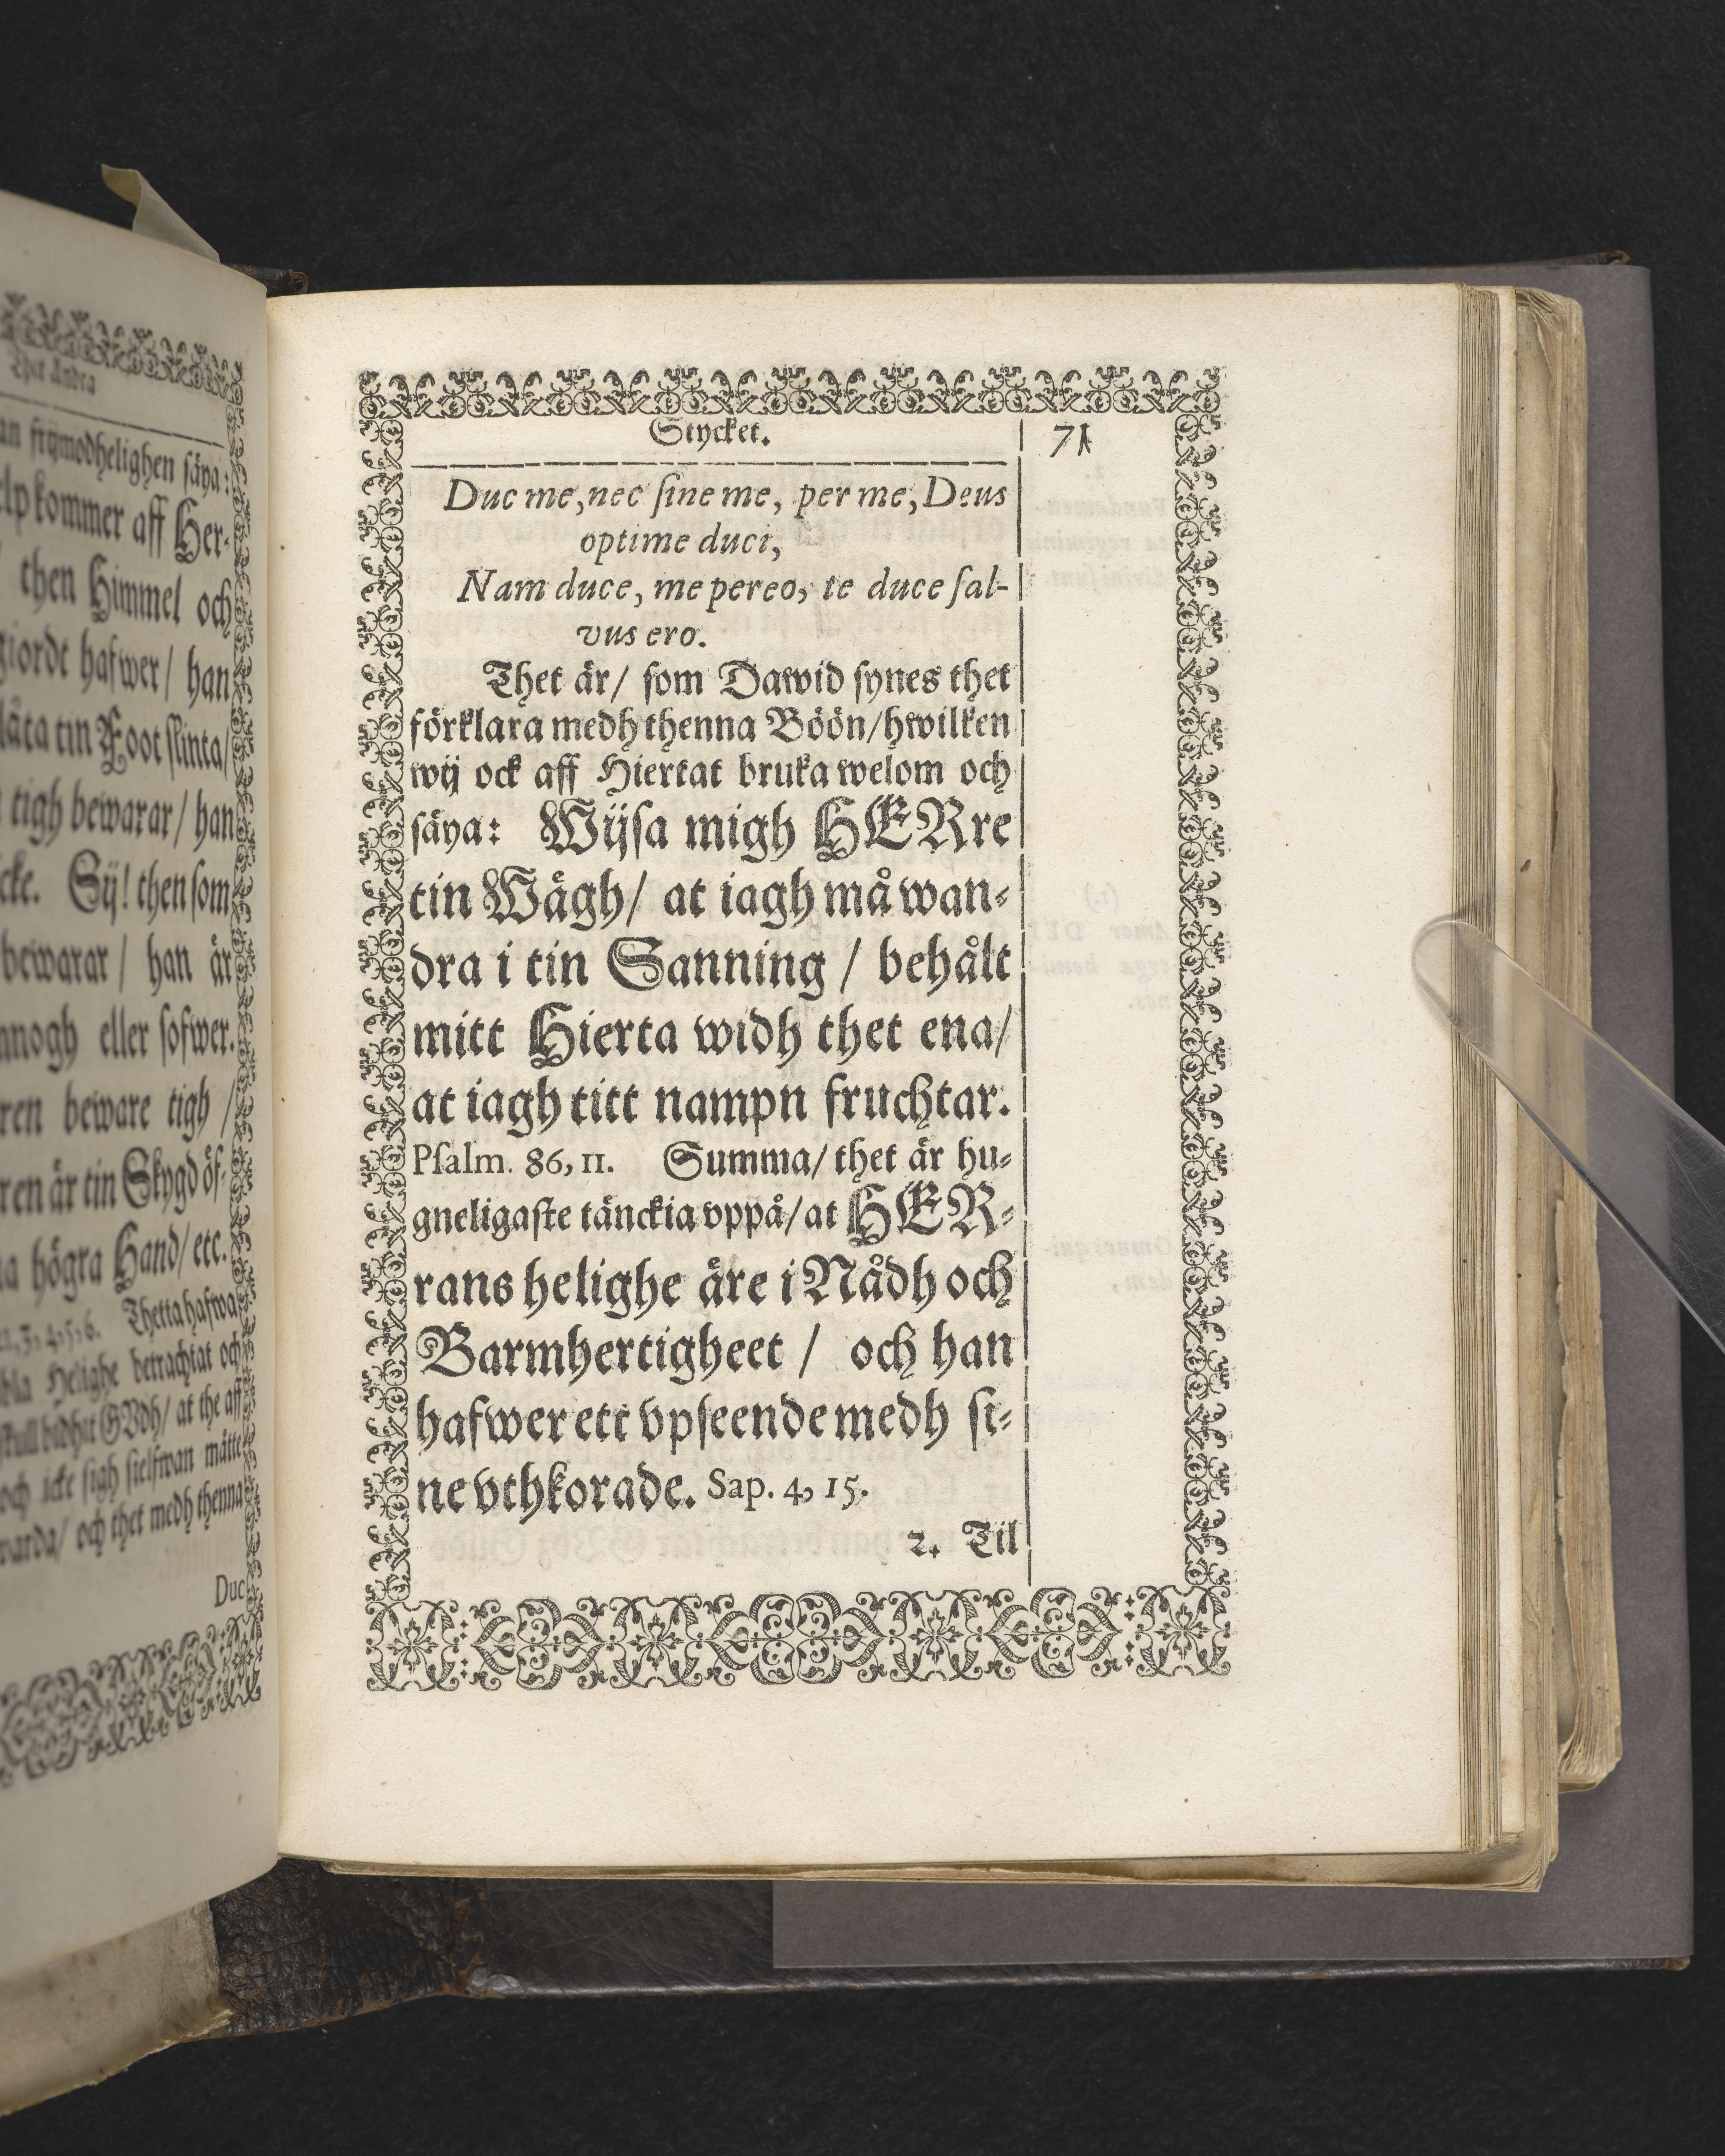 Thet Andra
frijmodhelighen säya:
kommer aff Her-
then Himmel och
giordt hafwer/ han
låta tin Foot slinta/
tigh bewarar/ han
Sij! then som
bewarar / han är
eller sofwer.
beware tigh /
är tin Skygd öf-
högra Hand/ etc.
Thetta hafwa
Helighe betrachtat och
bidhit GUdh/ at the aff
och icke sigh sielfwan måtte
warda/ och thet medh thenna
Duc
Stycket.
71
Duc me, nec ſine me, per me, Deus
optime duci,
Nam duce, me pereo, te duce ſal-
vus ero.
Thet är/ ſom Dawid ſynes thet
förklara medh thenna Böön/ hwilken
wij ock aff Hiertat bruka welom och
ſäya: Wijſa migh HERre
tin Wägh/ at iagh må wan-
dra i tin Sanning / behålt
mitt Hierta widh thet ena/
at iagh titt nampn fruchtar.
Pſalm. 86, 11. Summa/ thet är hu-
gneligaſte tänckia vppå/ at HER-
rans helighe äre i Nådh och
Barmhertigheet / och han
hafwer ett vpſeende medh ſi-
ne vthkorade. Sap. 4, 15.
2. Til